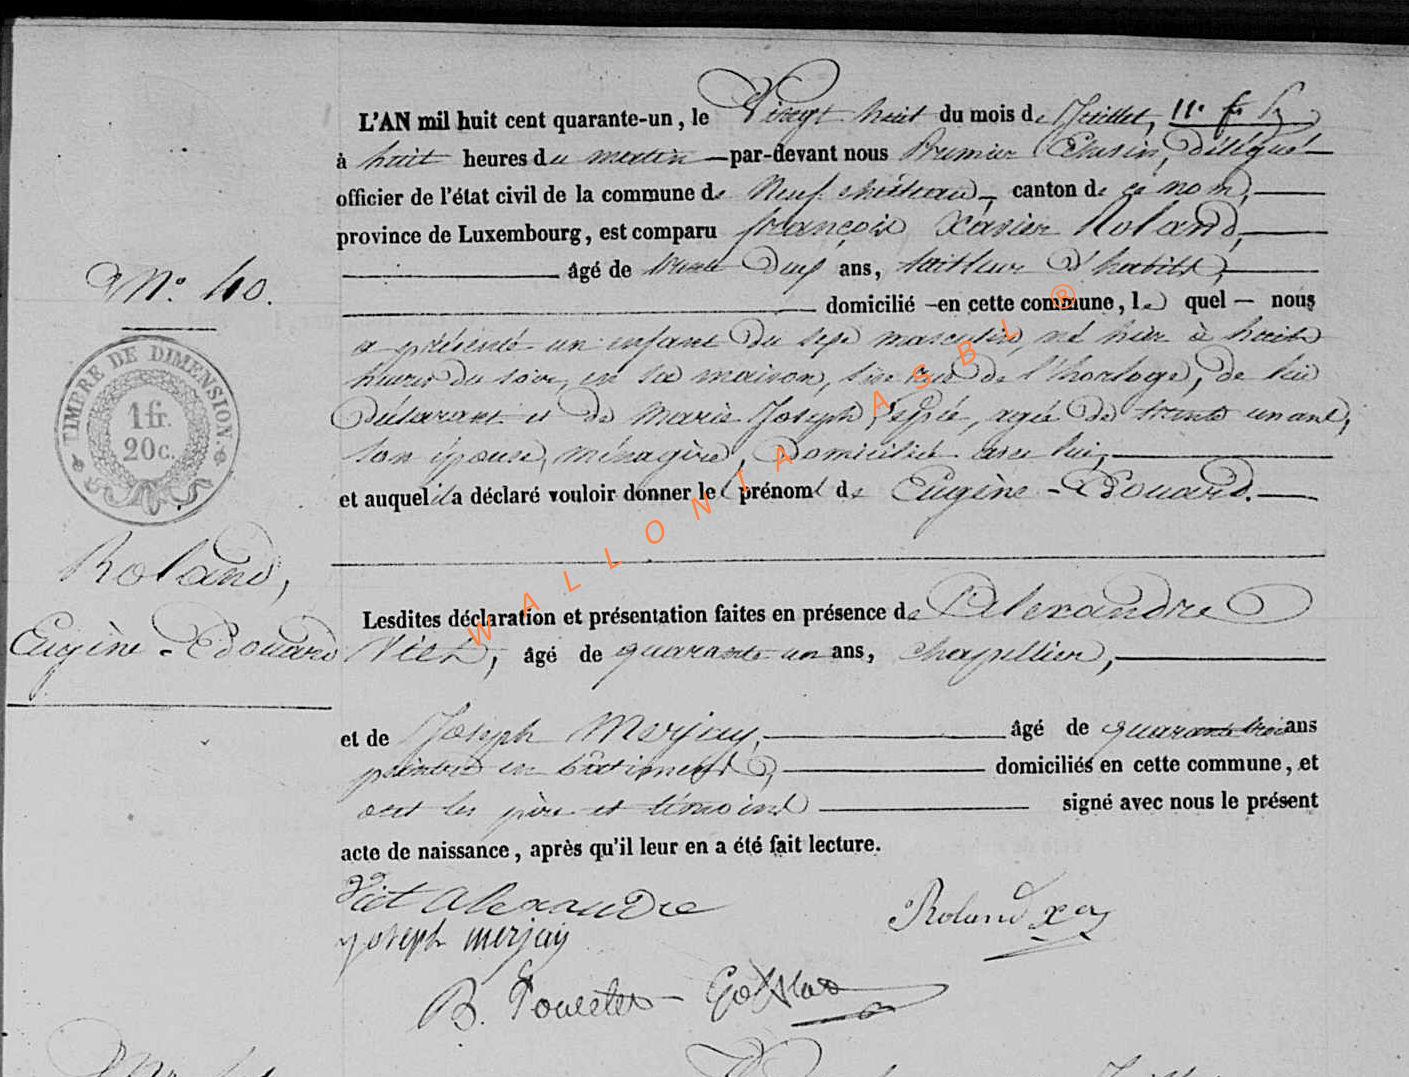 L'AN mil huit cent quarante-un, le Vingt huit du mois de Juillet,
à huit heures du matin par-devant nous Premier Echevin, délégué
officier de l'état civil de la commune de Neufchâteau, canton de ce nom,
province de Luxembourg, est comparu françois Xavier Roland,
N.° 40.
âgé de trente deux ans, tailleur d'habits,
domicilié en cette commune, le quel nous
a présenté un enfant du sexe masculin, né hier à huit
heures du soir, en sa maison, sise rue de l'horloge, de lui
TIMBRE DE DIMENSION.
1 fr.
20 c.
déclarant et de Marie Joseph, agée de trente un ans,
son épouse, ménagère, Domiciliée avec lui,
et auquel il a déclaré vouloir donner les prénoms de Eugène-Edouard.
Roland,
Eugène-Edouard
Lesdites déclaration et présentation faites en présence de Alexandre
Viet, âgé de quarante un ans, chapellier,
et de Joseph Merjay, âgé de quarante trois ans
peintre en bâtiments, domiciliés en cette commune, et
ont les père et témoins signé avec nous le présent
acte de naissance, après qu'il leur en a été fait lecture.
Viet Alexandre
Roland xer
joseph merjay
B.
WALLONIA ASBL ®